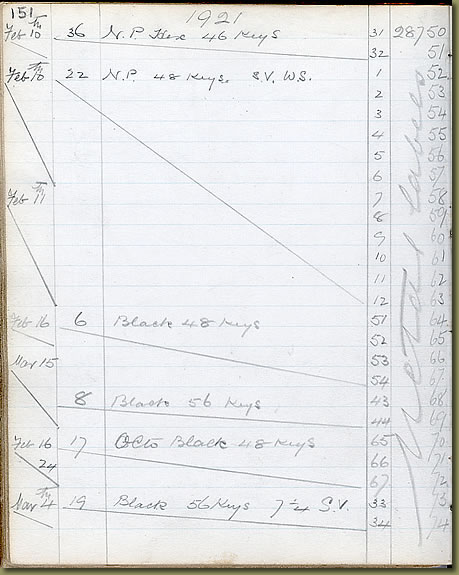 151 1921
Feb 10th 36 N.P. Hex 46 Keys 31 28750
32 51
Feb 10th 22 N.P. 48 Keys. S.V. W.S. 1 52
2 53
3 54
4 55
5 56
6 57
Feb 11th 7 58
8 59
9 60
10 61
11 62
12 63
Feb 16 6 Black 48 Keys 51 64
52 65
Mar 15 53 66
54 67
8 Black 56 Keys 43 68
44 69
Feb 16 17 Octo Black 48 Keys 65 70
24 66 71
67 72
Mar 4th 19 Black 56 Keys 7 1/4 S.V. 33 73
34 74
Metal Labels